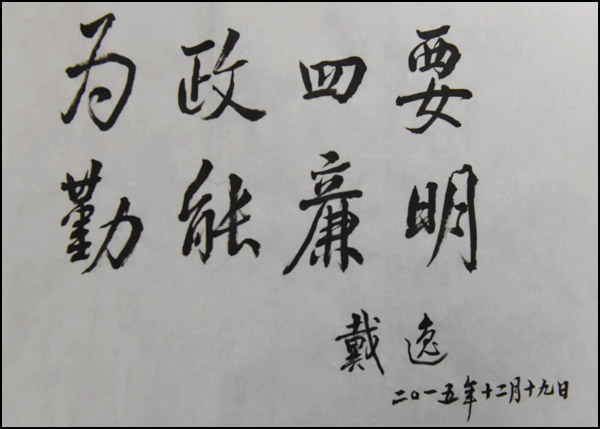 为政四要
勤能廉明
戴逸
二〇一五年十二月十九日